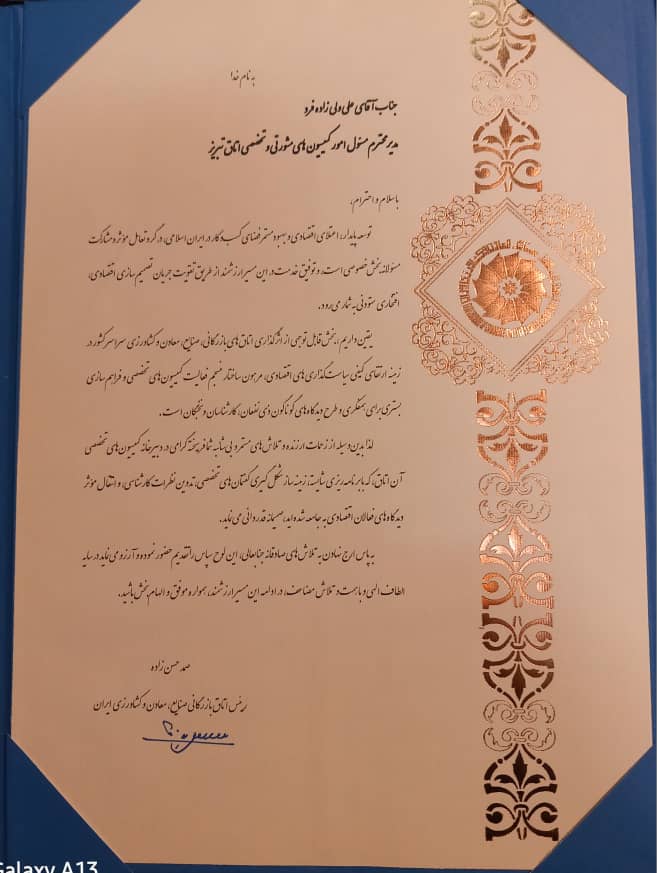 به نام خدا
جناب آقای علی ولی زاده فرد
مدیر محترم مسئول امور کمیسیون های مشورتی و تخصصی اتاق تبریز
با سلام و احترام،
توسعه پایدار، اعتلای اقتصادی و بهبود مستمر فضای کسب و کار در ایران اسلامی، در گرو تعامل مؤثر و مشارکت
مسئولانه بخش خصوصی است و توفیق خدمت در این مسیر ارزشمند از طریق تقویت جریان تصمیم سازی اقتصادی،
افتخاری ستودنی به شمار می رود.
یقین داریم، بخش قابل توجهی از اثرگذاری اتاق های بازرگانی، صنایع، معادن و کشاورزی سراسر کشور در
زمینه ارتقای کیفی سیاست گذاری های اقتصادی، مرهون ساختار منسجم فعالیت کمیسیون های تخصصی و فراهم سازی
بستری برای همفکری و طرح دیدگاه های گوناگون ذی نفعان، کارشناسان و نخبگان است.
لذا بدین وسیله از زحمات ارزنده و تلاش های مستمر و بی شائبه شما فرهیخته گرامی در دبیرخانه کمیسیون های تخصصی
آن اتاق، که با برنامه ریزی شایسته زمینه ساز شکل گیری گفتمان های تخصصی، تدوین نظرات کارشناسی، و انتقال مؤثر
دیدگاه های فعالان اقتصادی به جامعه شده اید، صمیمانه قدردانی می نماید.
به پاس ارج نهادن به تلاش های صادقانه جنابعالی، این لوح سپاس را تقدیم حضور نموده و آرزو می نماید در سایه
الطاف الهی و با همت و تلاش مضاعف، در ادامه این مسیر ارزشمند، همواره موفق و الهام بخش باشید.
صمد حسن زاده
رئیس اتاق بازرگانی صنایع، معادن و کشاورزی ایران
Galaxy A13